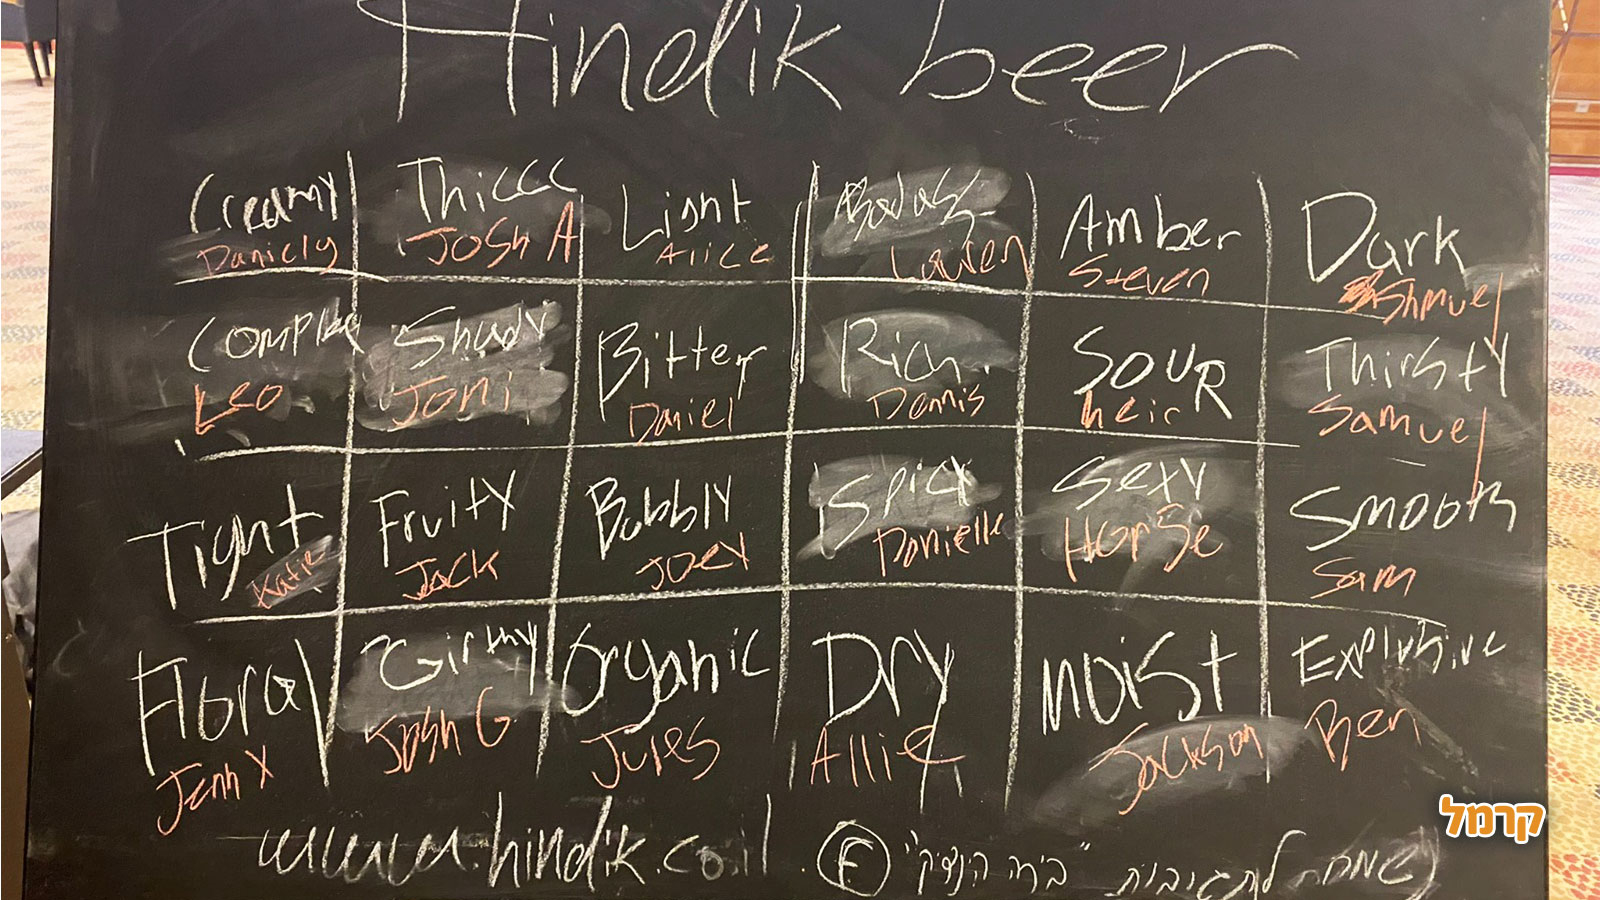 Hindik beer
Creamy Thiccc Light Badass Amber Dark
Daniely Josh A Alice Lauren Steven Shmuel
Complex Shady Bitter Rich Sour Thirsty
Leo Joni Daniel Dennis heir Samuel
Tight Fruity Bubbly Spicy Sexy Smooth
Katie Jack Joey Danielle Horse Sam
Floral Girthy Organic Dry Moist Explosive
Jenn X Josh G Jules Allie Jackson Ben
www.hindik.co.il . F "בירה הינדיק"
קרמל